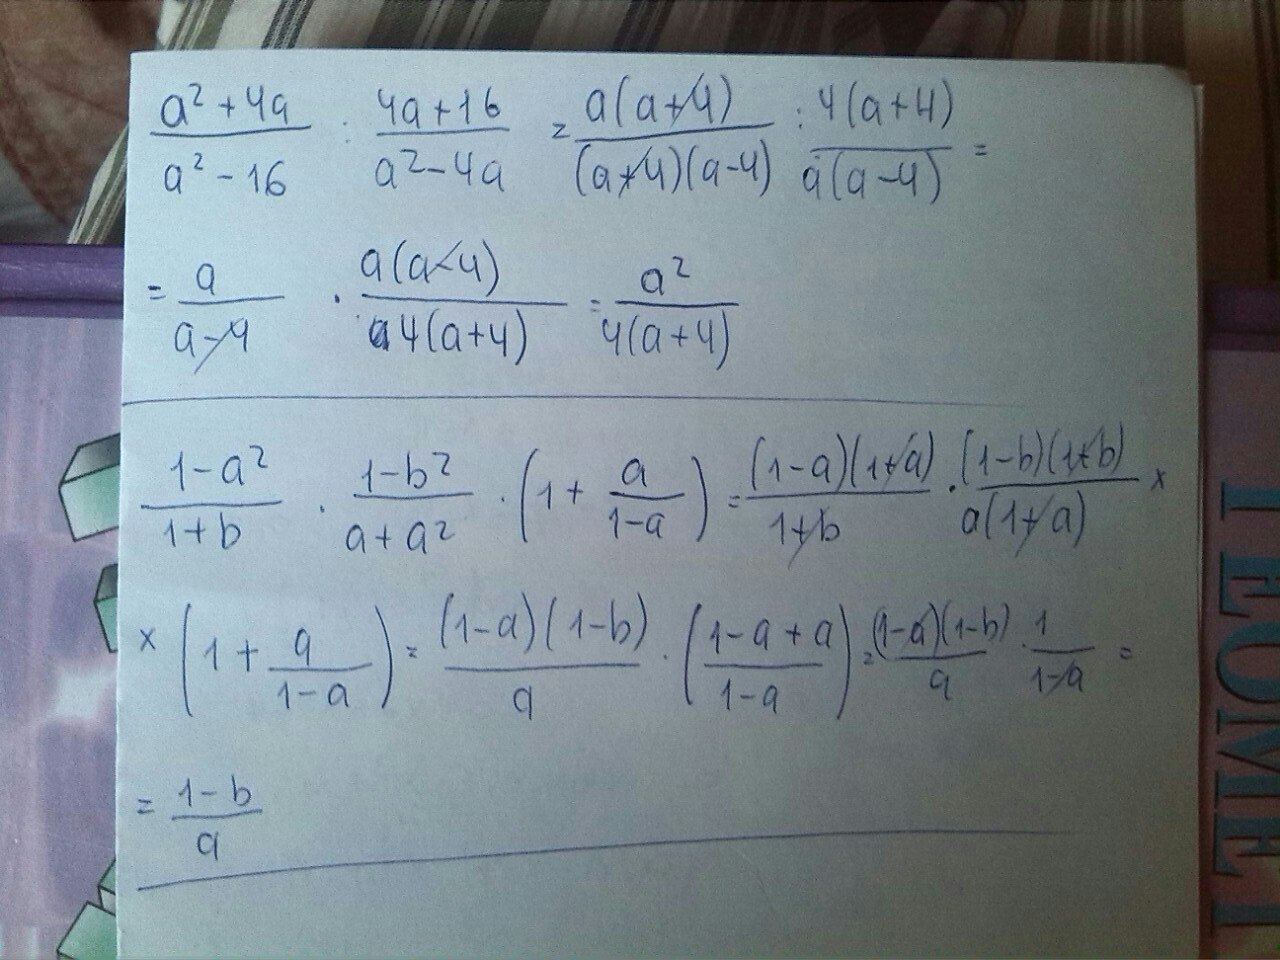 (a² + 4a)/(a² - 16) : (4a + 16)/(a² - 4a) = a(a+4)/((a+4)(a-4)) : 4(a+4)/(a(a-4)) =
= a/(a-4) · a(a-4)/(4(a+4)) = a²/(4(a+4))
(1-a²)/(1+b) · (1-b²)/(a+a²) · (1 + a/(1-a)) = (1-a)(1+a)/(1+b) · (1-b)(1+b)/(a(1+a)) ×
× (1 + a/(1-a)) = (1-a)(1-b)/a · ((1-a+a)/(1-a)) = (1-a)(1-b)/a · 1/(1-a) =
= (1-b)/a